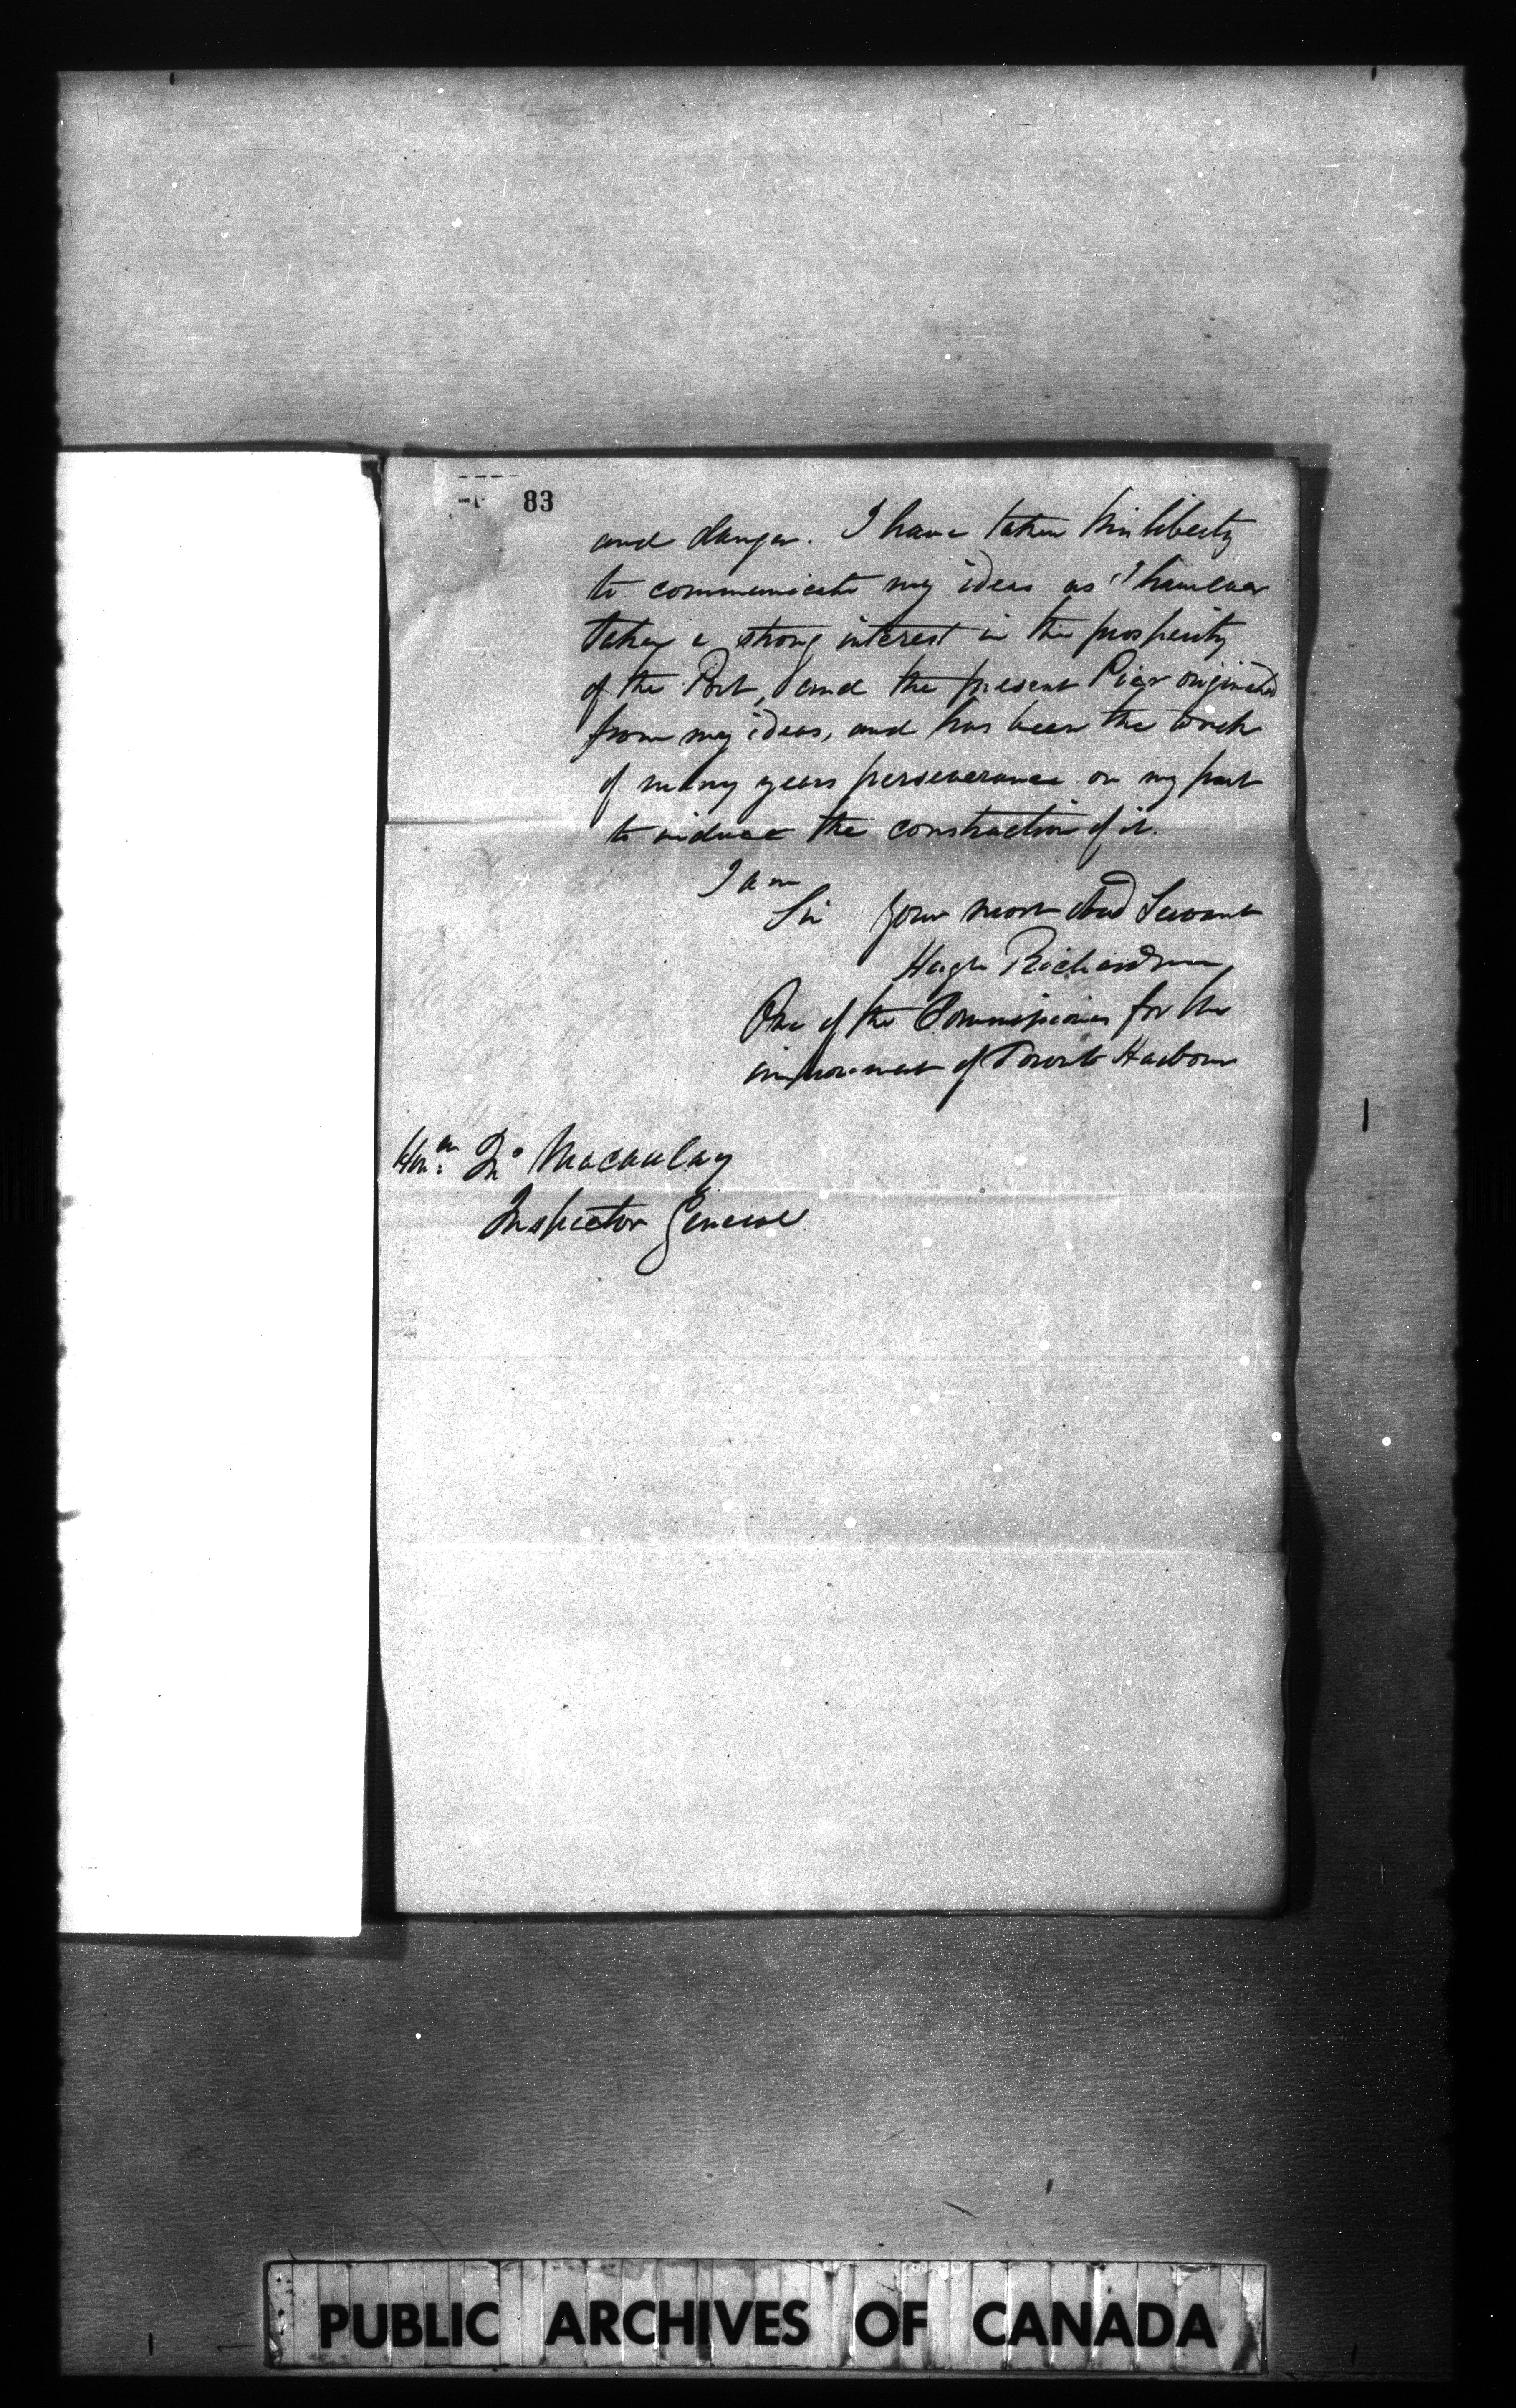 83
and danger. I have taken this liberty
to communicate my ideas as I have ever
taken a strong interest in the prosperity
of the Port, and the present Pier originated
from my ideas, and has been the work
of many years perseverance on my part
to induce the construction of it.
I am
Sir your most obed Servant
Hugh Richardson
One of the Commissioners for the
improvement of Toronto Harbour
Honble Jno Macaulay
Inspector General
PUBLIC ARCHIVES OF CANADA